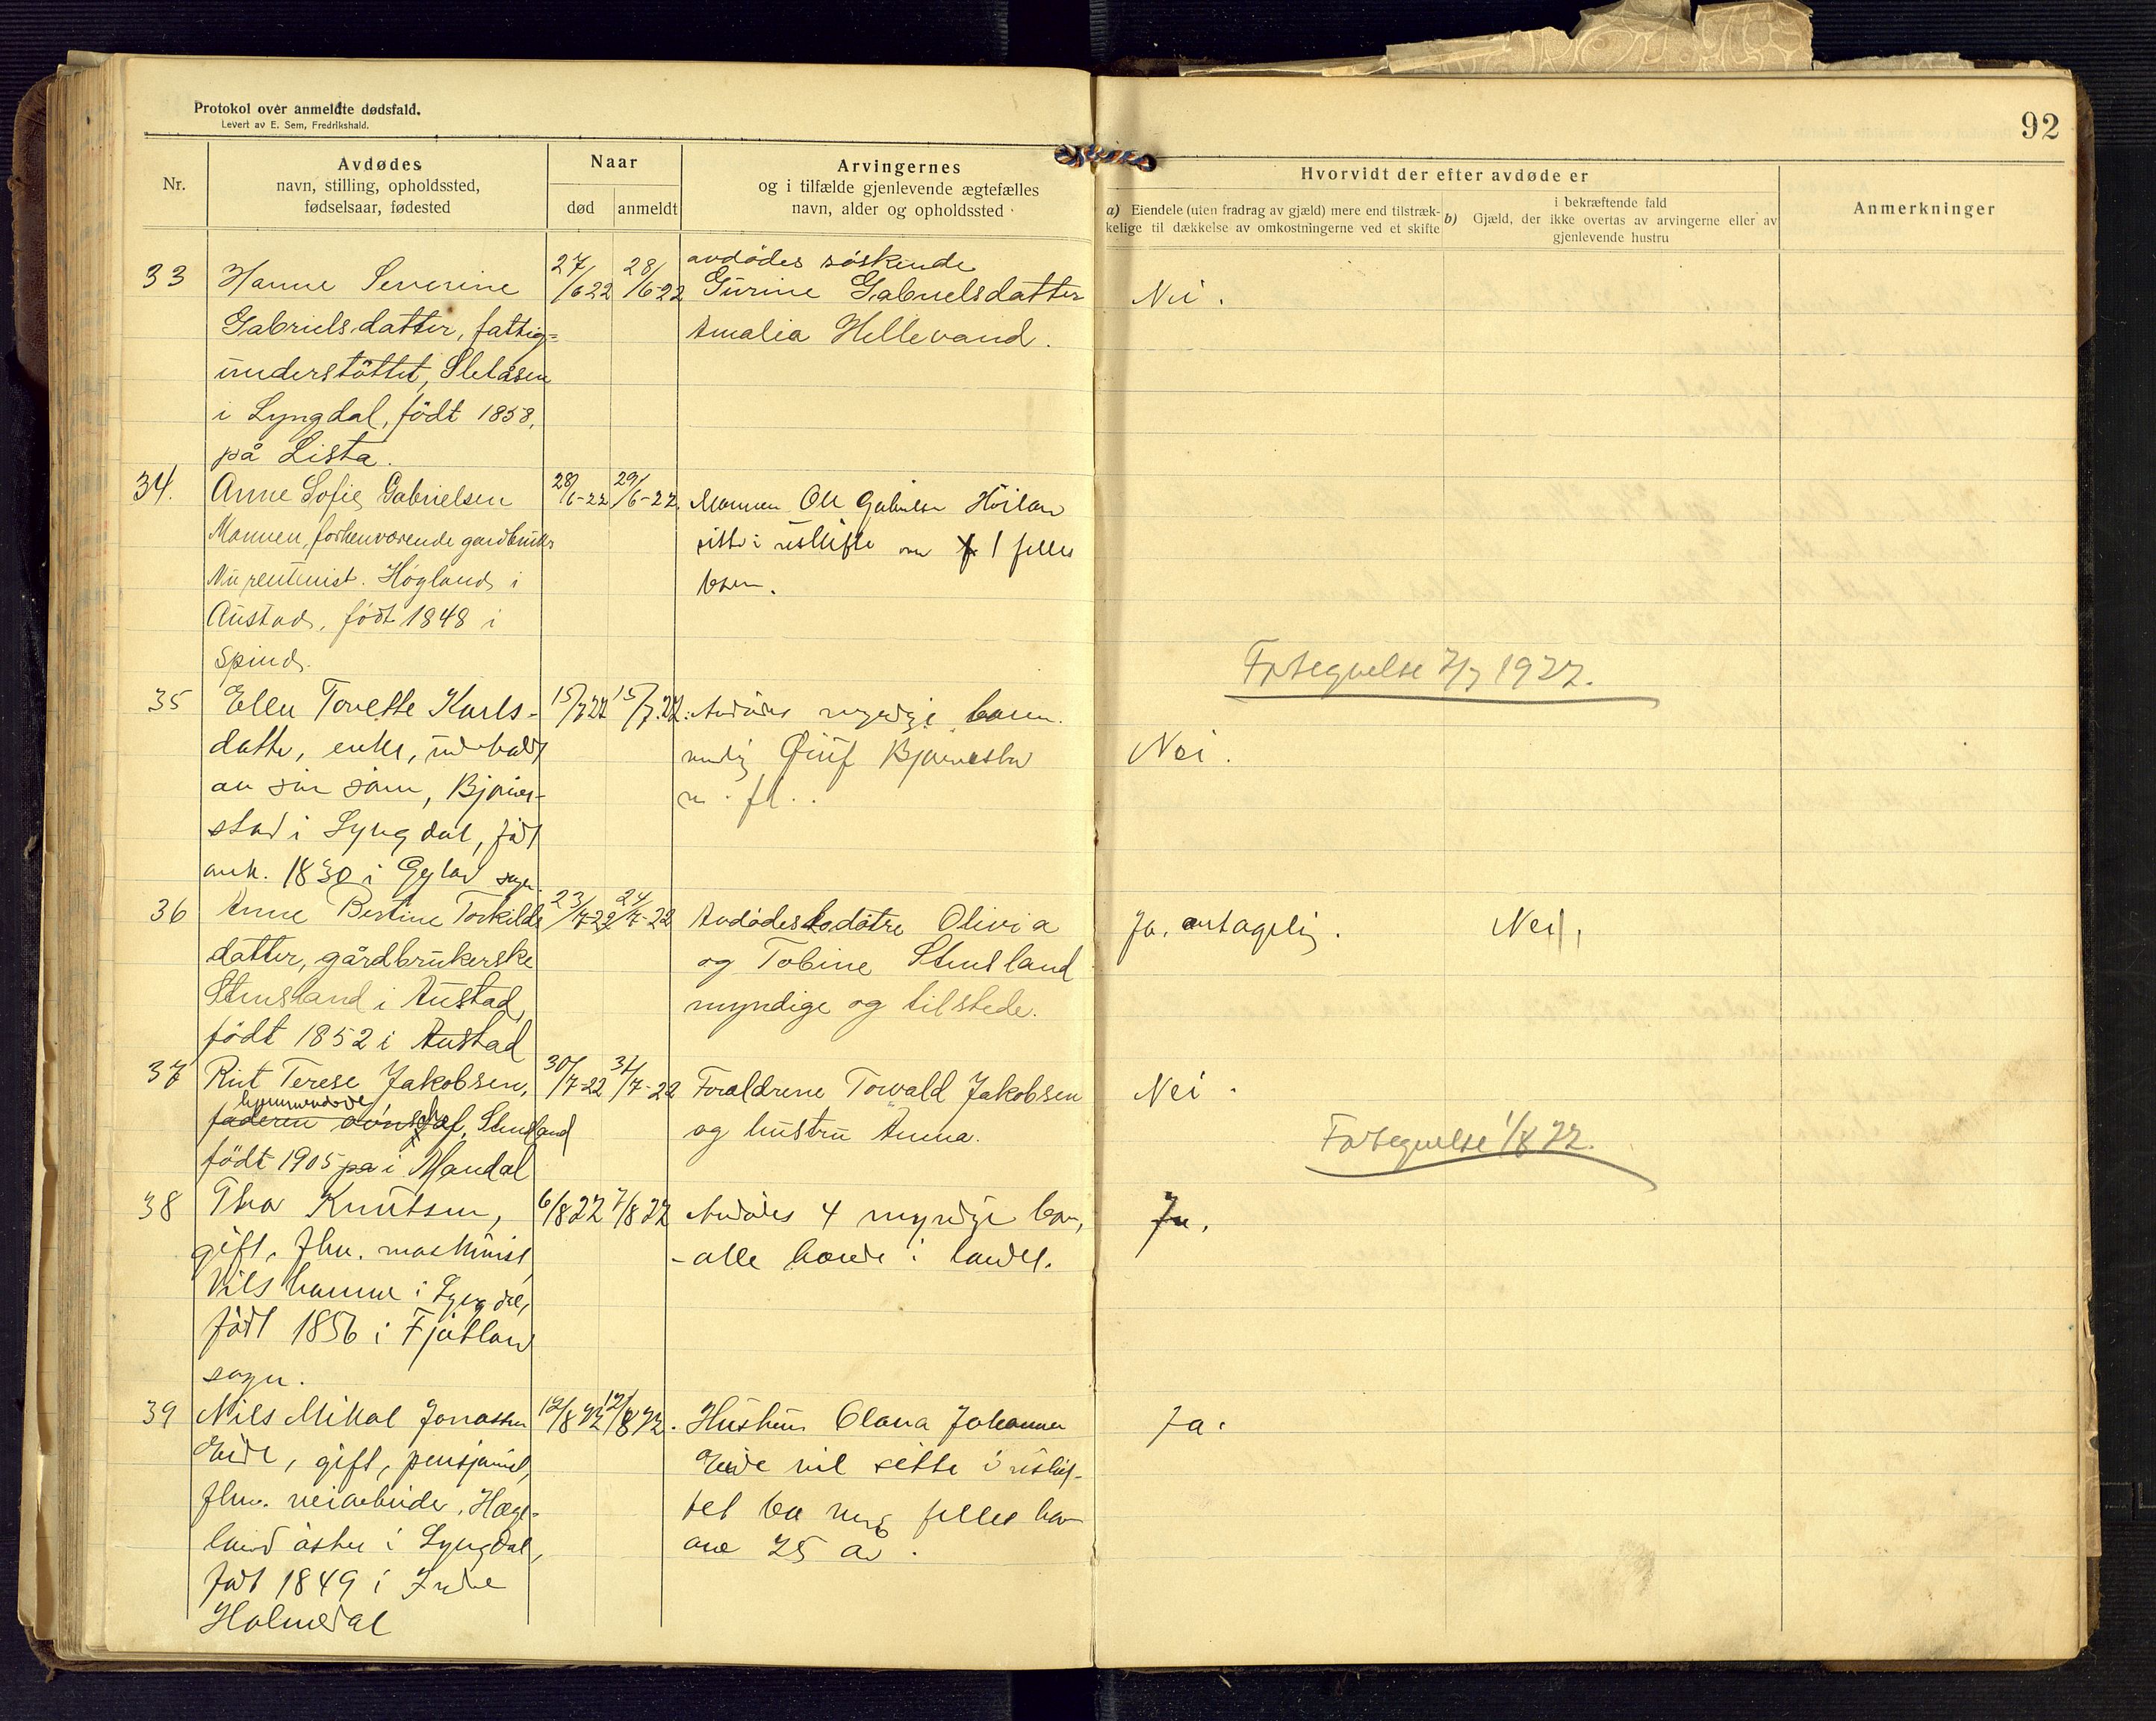 Protokol over anmeldte dødsfald.
Levert av E. Sem, Fredrikshald.
92
Nr.
Avdødes
navn, stilling, opholdssted,
fødselsaar, fødested
Naar
død
anmeldt
Arvingernes
og i tilfælde gjenlevende ægtefælles
navn, alder og opholdssted
Hvorvidt der efter avdøde er
a) Eiendele (uten fradrag av gjæld) mere end tilstræk-
kelige til dækkelse av omkostningerne ved et skifte
i bekræftende fald
b) Gjæld, der ikke overtas av arvingerne eller av
gjenlevende hustru
Anmerkninger
33
Hanne Severine
Gabrielsdatter, fattig=
understöttet, Sletåsen
i Lyngdal, födt 1858,
på Lista.
27/6 22
28/6-22
avdødes søskende
Gurine Gabrielsdatter
Amalia Hellevand.
Nei.
34.
Anne Sofie Gabrielsen
Mannen, forhenværende gardbruker
Nu rentenist. Høgland i
Austad, født 1848 i
Spind.
28/6-22
29/6-22.
Mannen Ole Gabrielsen Höiland
sitter i uskifte med 1 felles
barn.
Fortegnelse 7/7 1922.
35
Elen Tonette Karls-
datter, enke, underholdt
av sin sønn, Bjørne-
stad i Lyngdal, født
ank. 1830 i Gyland sogn.
15/7 22
15/7.22.
Avdødes myndige barn.
nemlig Bjørnestad
m. fl..
Nei.
36
Anne Bertine Torkilds
datter, gårdbrukerske
Stensland i Austad,
födt 1852 i Austad
23/7-22
24/7-22
Avdødes to døtre Olivia
og Tobine Stensland
myndige og tilstede.
Ja, antagelig.
Nei.
37
Rut Terese Jakobsen,
hjemmeværende
faderen Stensland
födt 1905 på i Mandal
30/7-22
31/7-22
Foraldrene Torvald Jakobsen
og hustru Anna.
Nei.
Fortegnelse 1/8 22.
38
Thor Knutsen,
gift, fhv. maskinist
Vilshamne i Lyngdal,
født 1856 i Fjotland
sogn.
6/8 22
7/8 22
Avdødes 4 myndige barn,
- alle boende i landet.
Ja.
39
Nils Mikal Jonassen
Eide, gift, pensjonist,
fhv. veiarbeider, Hæge-
land østre i Lyngdal,
født 1849 i Indre
Holmedal
12/8 22
12/8 22.
Hustru Olava Johanna
Eide vil sitte i uskif-
tet bo med felles barn
over 25 år.
Ja.